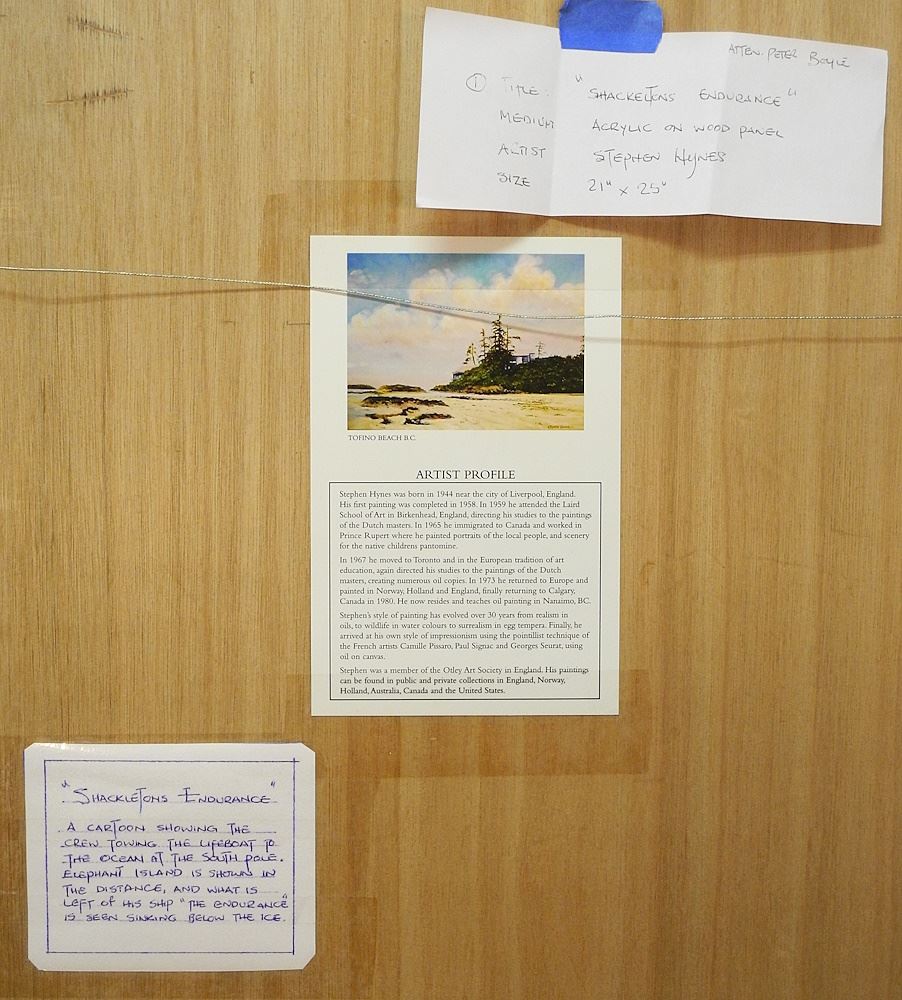 ATTEN. PETER BOYLE
① TITLE: "SHACKELTONS ENDURANCE"
MEDIUM ACRYLIC ON WOOD PANEL
ARTIST STEPHEN HYNES
SIZE 21" x 25"
TOFINO BEACH B.C.
ARTIST PROFILE
Stephen Hynes was born in 1944 near the city of Liverpool, England.
His first painting was completed in 1958. In 1959 he attended the Laird
School of Art in Birkenhead, England, directing his studies to the paintings
of the Dutch masters. In 1965 he immigrated to Canada and worked in
Prince Rupert where he painted portraits of the local people, and scenery
for the native childrens pantomine.
In 1967 he moved to Toronto and in the European tradition of art
education, again directed his studies to the paintings of the Dutch
masters, creating numerous oil copies. In 1973 he returned to Europe and
painted in Norway, Holland and England, finally returning to Calgary,
Canada in 1980. He now resides and teaches oil painting in Nanaimo, BC.
Stephen's style of painting has evolved over 30 years from realism in
oils, to wildlife in water colours to surrealism in egg tempera. Finally, he
arrived at his own style of impressionism using the pointillist technique of
the French artists Camille Pissaro, Paul Signac and Georges Seurat, using
oil on canvas.
Stephen was a member of the Otley Art Society in England. His paintings
can be found in public and private collections in England, Norway,
Holland, Australia, Canada and the United States.
"SHACKLETONS ENDURANCE"
A CARTOON SHOWING THE
CREW TOWING THE LIFEBOAT TO
THE OCEAN AT THE SOUTH POLE.
ELEPHANT ISLAND IS SHOWN IN
THE DISTANCE, AND WHAT IS
LEFT OF HIS SHIP "THE ENDURANCE"
IS SEEN SINKING BELOW THE ICE.